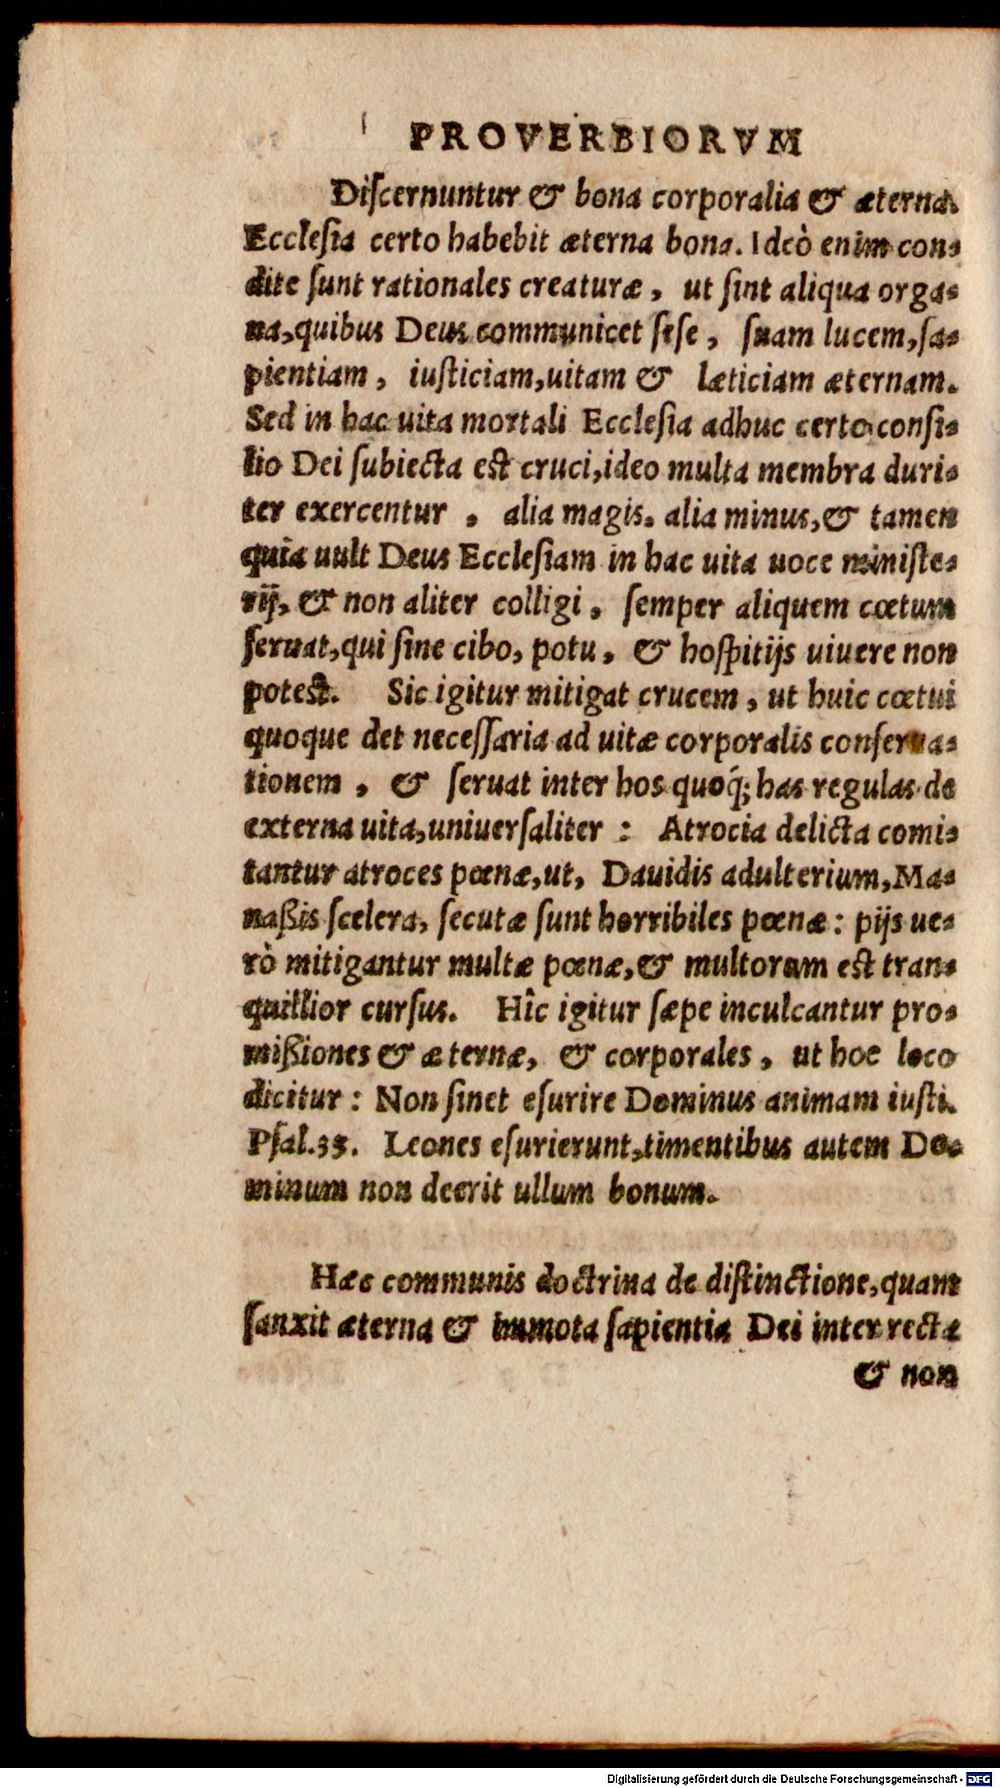 PROVERBIORVM
Discernuntur & bona corporalia & æterna.
Ecclesia certo habebit æterna bona. Ideò enim con-
dite sunt rationales creaturæ, ut sint aliqua orga-
na, quibus Deus communicet sese, suam lucem, sa-
pientiam, iusticiam, uitam & læticiam æternam.
Sed in hac uita mortali Ecclesia adhuc certo consi-
lio Dei subiecta est cruci, ideo multa membra duri-
ter exercentur, alia magis. alia minus, & tamen
quia uult Deus Ecclesiam in hac uita uoce ministe-
rij, & non aliter colligi, semper aliquem cœtum
seruat, qui sine cibo, potu, & hospitijs uiuere non
potest. Sic igitur mitigat crucem, ut huic cœtui
quoque det necessaria ad uitæ corporalis conserua-
tionem, & seruat inter hos quoq́; has regulas de
externa uita, uniuersaliter: Atrocia delicta comi-
tantur atroces pœnæ, ut, Dauidis adulterium, Ma-
naßis scelera, secutæ sunt horribiles pœnæ: pijs ue-
rò mitigantur multæ pœnæ, & multorum est tran-
quillior cursus. Hîc igitur sæpe inculcantur pro-
mißiones & æternæ, & corporales, ut hoc loco
dicitur: Non sinet esurire Dominus animam iusti.
Psal.33. Leones esurierunt, timentibus autem Do-
minum non deerit ullum bonum.
Hæc communis doctrina de distinctione, quam
sanxit æterna & immota sapientia Dei inter recta
& non
Digitalisierung gefördert durch die Deutsche Forschungsgemeinschaft - DFG